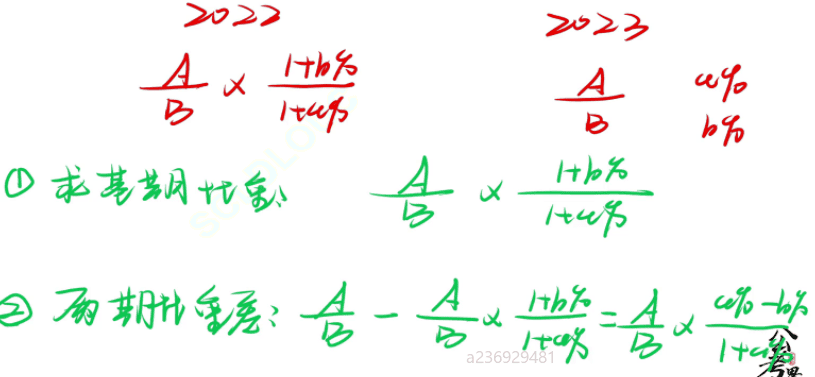 2022 2023
A/B × (1+b%)/(1+a%) A/B a% b%
① 求基期比重: A/B × (1+b%)/(1+a%)
② 两期比重差: A/B - A/B × (1+b%)/(1+a%) = A/B × (a%-b%)/(1+a%)
a236929481